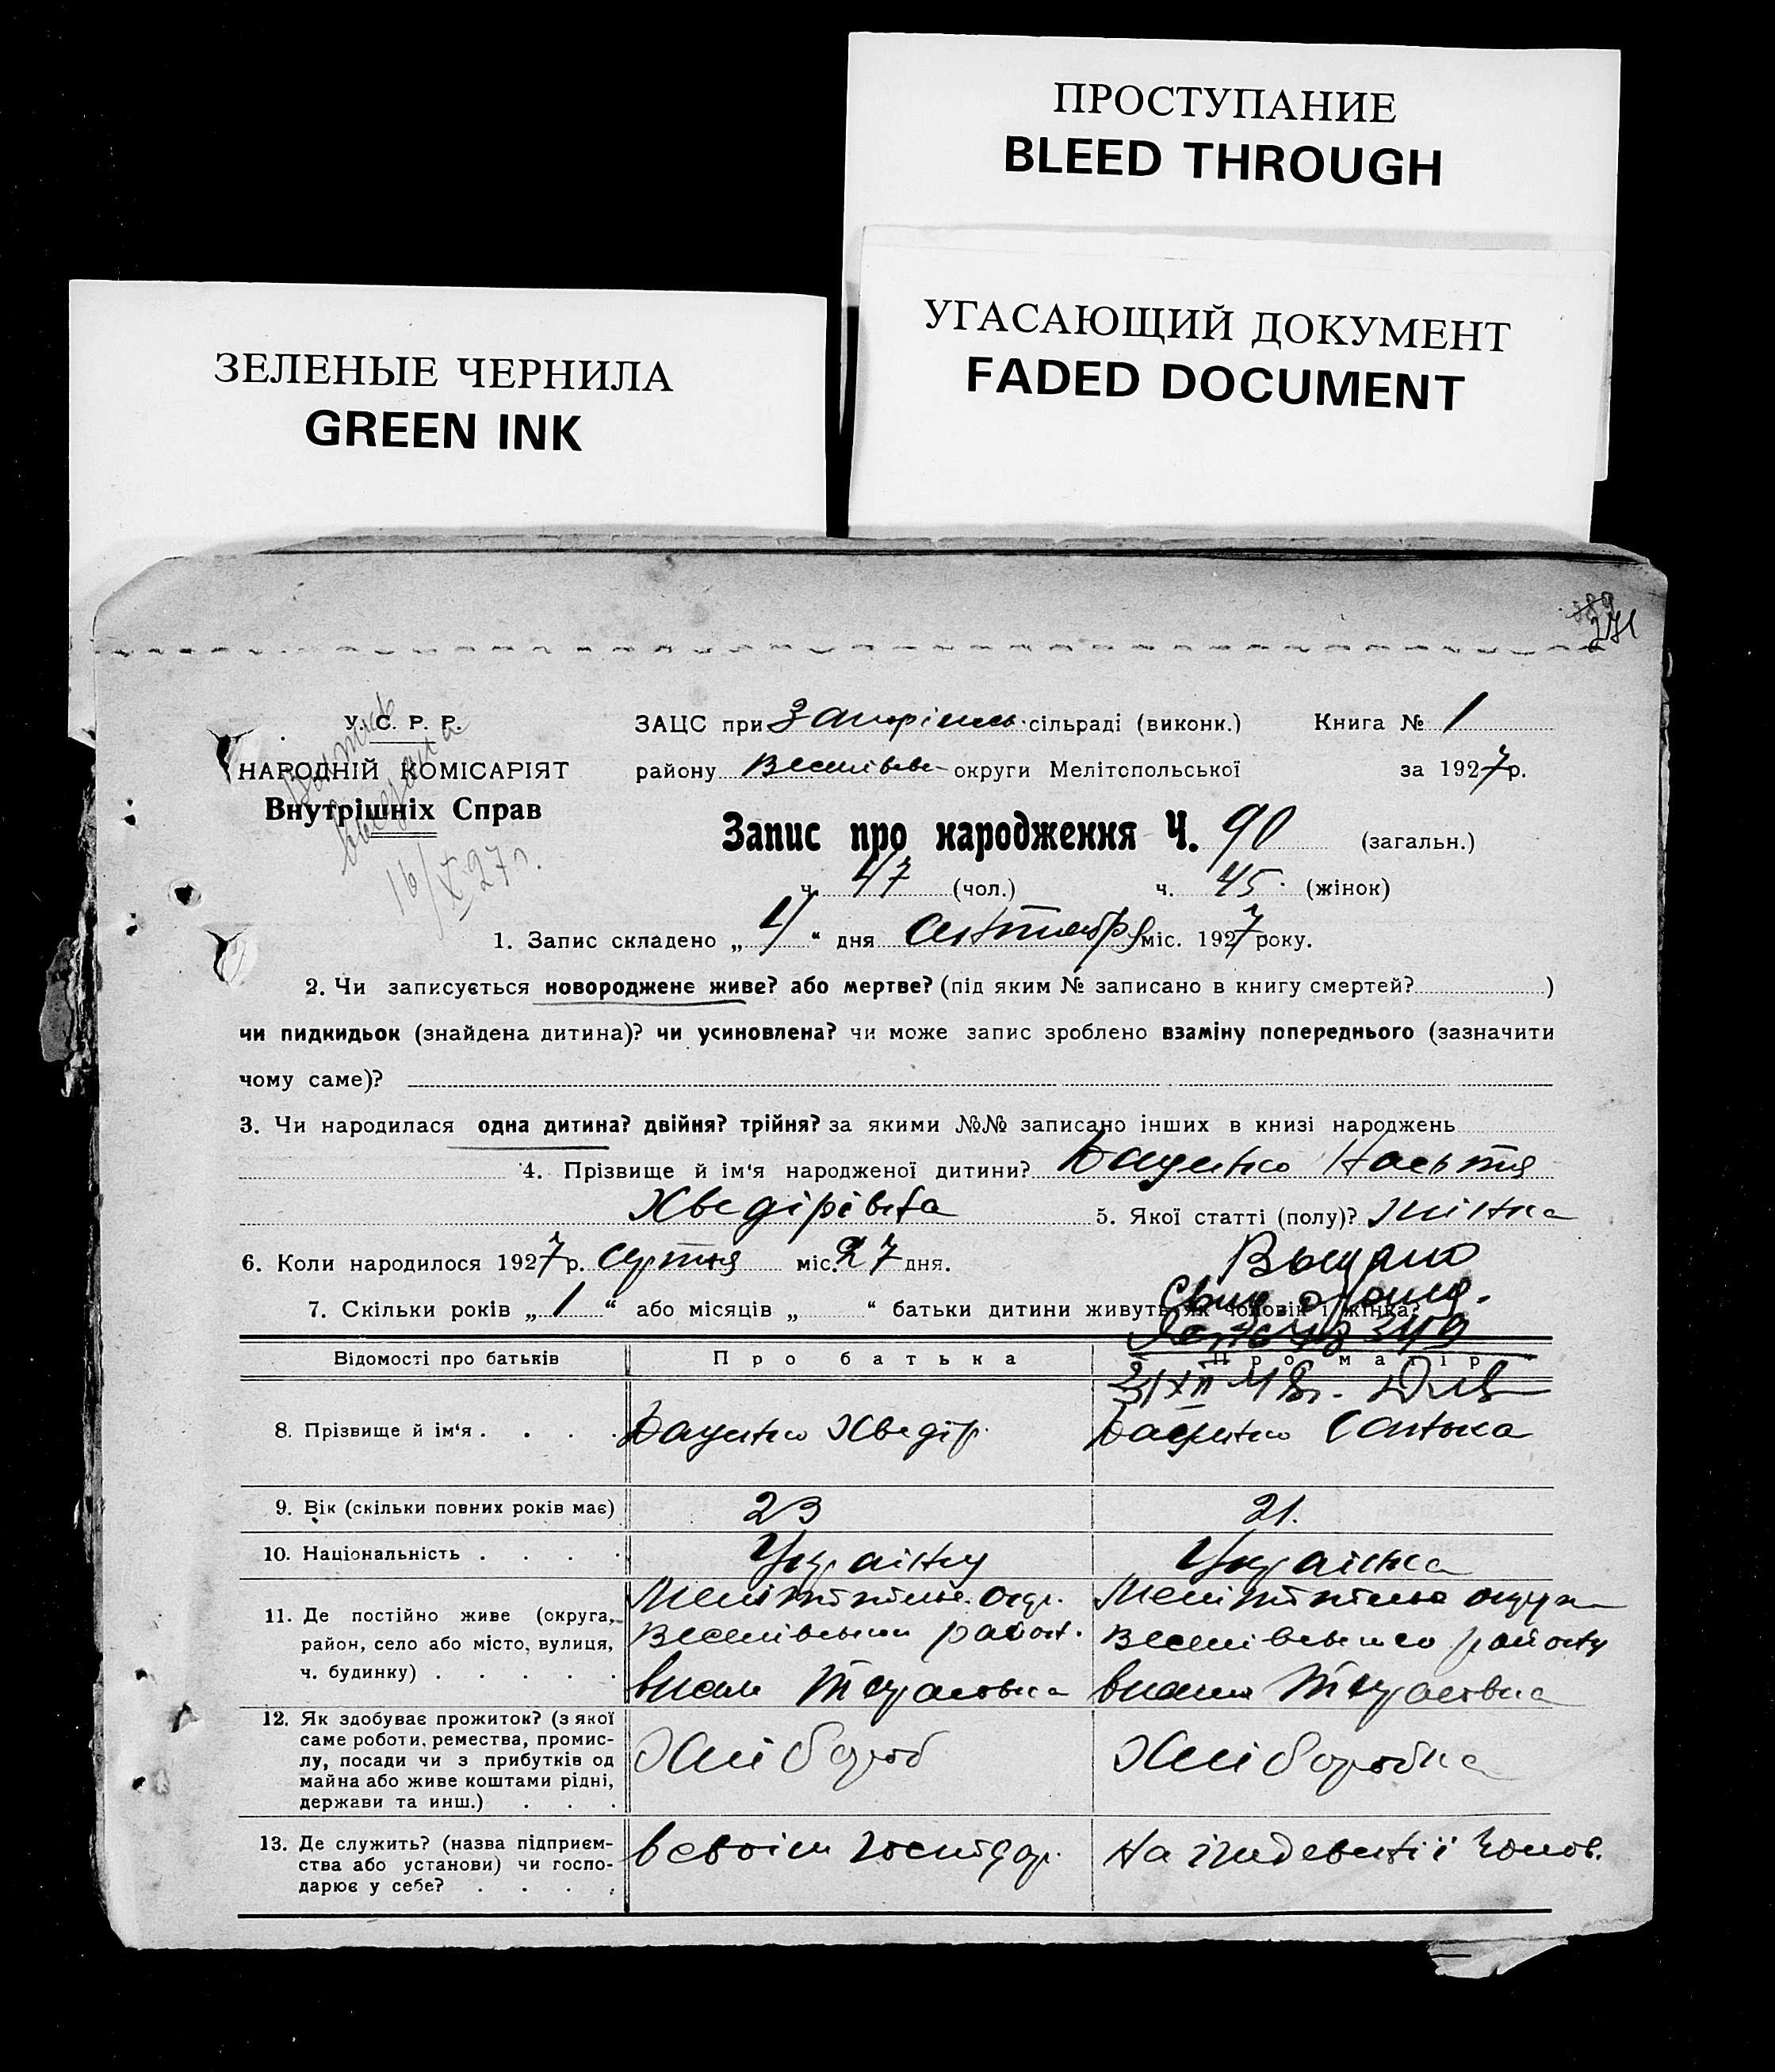 ПРОСТУПАНИЕ
BLEED THROUGH
УГАСАЮЩИЙ ДОКУМЕНТ
FADED DOCUMENT
ЗЕЛЕНЫЕ ЧЕРНИЛА
GREEN INK
271
У. С. Р. Р.
НАРОДНІЙ КОМІСАРІЯТ
Внутрішніх Справ
16/X 27 р.
ЗАЦС при сільраді (виконк.) Книга № 1
району округи Мелітопольської за 1927 р.
Запис про народження Ч. 90 (загальн.)
ч. 47 (чол.) ч. 45. (жінок)
1. Запис складено „ 4 “ дня міс. 1927 року.
2. Чи записується новороджене живе? або мертве? (під яким № записано в книгу смертей? )
чи пидкидьок (знайдена дитина)? чи усиновлена? чи може запис зроблено взаміну попереднього (зазначити
чому саме)?
3. Чи народилася одна дитина? двійня? трійня? за якими №№ записано інших в книзі народжень
4. Прізвище й ім‘я народженої дитини? Даценко Настя
Хведірівна 5. Якої статті (полу)? жінка
6. Коли народилося 1927 р. серпня міс. 27 дня.
Выдано
7. Скільки років „ 1 “ або місяців „ “ батьки дитини живуть як чоловік і жінка?
Свид о рожд.
Відомості про батьків Про батька Про матір
8. Прізвище й ім‘я . . . . Даценко Хведір. Даценко
9. Вік (скільки повних років має) 23 21.
10. Національність . . . . Українц Українка
11. Де постійно живе (округа, район, село або місто, вулиця, ч. будинку) . . . . .
12. Як здобуває прожиток? (з якої
саме роботи, ремества, промис-
лу, посади чи з прибутків од
майна або живе коштами рідні,
держави та инш.) . . .
Хлібороб Хліборобка
13. Де служить? (назва підприєм-
ства або установи) чи госпо-
дарює у себе? . . . .
в своїм господар. на іждевенії чолов.